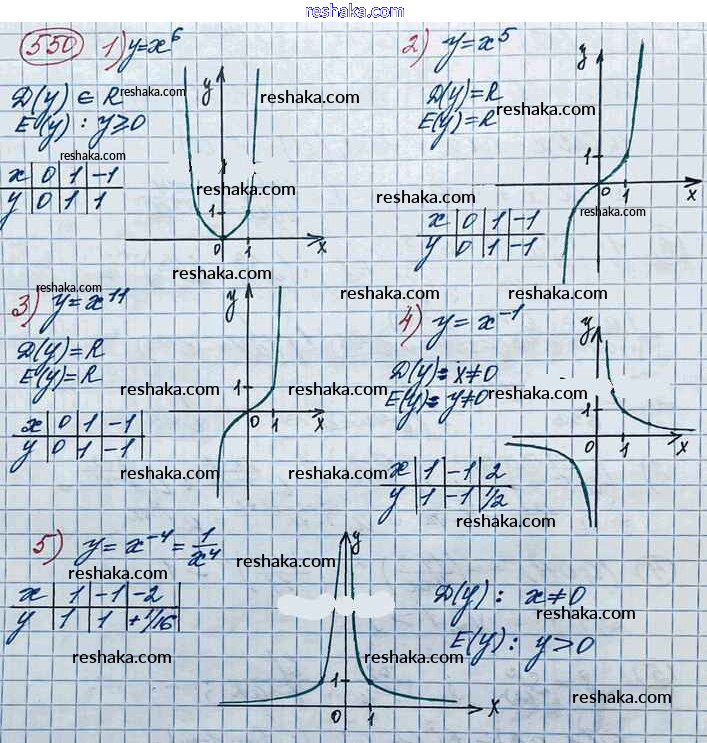 reshaka.com
550 1) y=x⁶
D(y) ∈ R reshaka.com
E(y) : y≥0
reshaka.com
x | 0 | 1 | -1
y | 0 | 1 | 1
y
reshaka.com
reshaka.com
1
0 1 x
reshaka.com
2) y=x⁵
reshaka.com
D(y)=R
E(y)=R
x | 0 | 1 | -1
y | 0 | 1 | -1
y
1
0 1 x
reshaka.com
reshaka.com
reshaka.com
3) y=x¹¹
D(y)=R
E(y)=R
reshaka.com
x | 0 | 1 | -1
y | 0 | 1 | -1
reshaka.com
y
1
0 1 x
4) y=x⁻¹
D(y)= x≠0
E(y)= y≠0
reshaka.com
reshaka.com
x | 1 | -1 | 2
y | 1 | -1 | 1/2
reshaka.com
y
1
0 1 x
5) y=x⁻⁴=1/x⁴
reshaka.com
reshaka.com
x | 1 | -1 | -2
y | 1 | 1 | +1/16
reshaka.com
y
1
0 1 x
reshaka.com
D(y) : x≠0
reshaka.com
E(y) : y>0
reshaka.com